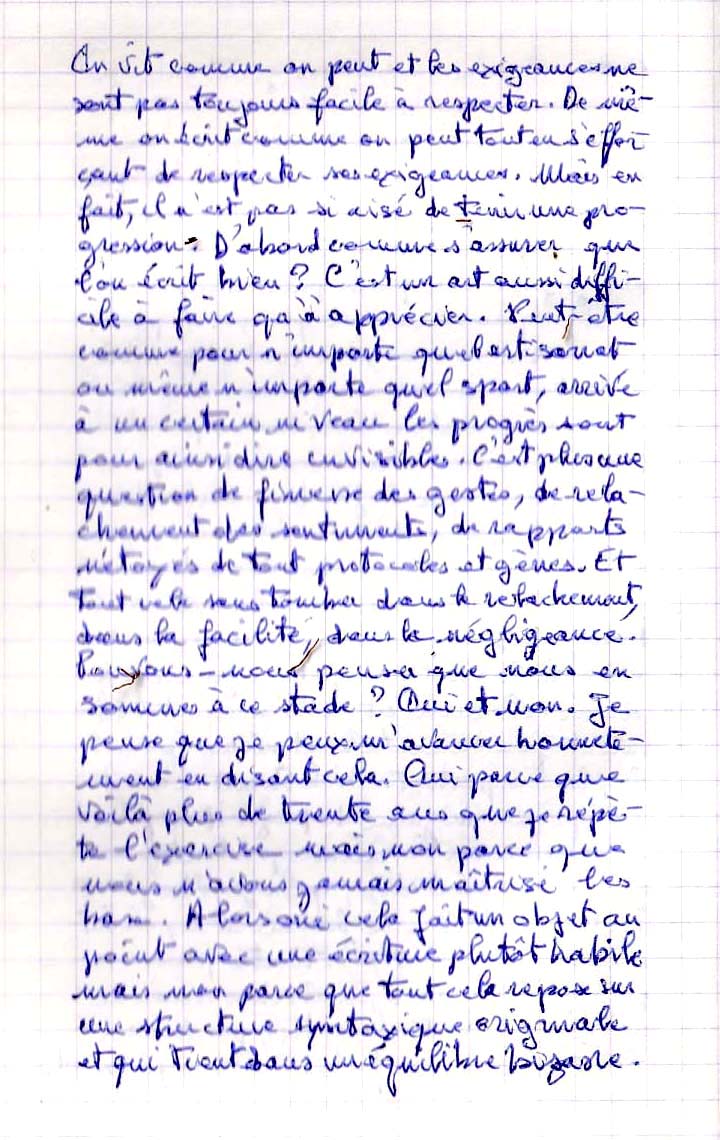 On vit comme on peut et les exigeances ne
sont pas toujours facile à respecter. De mê-
me on écrit comme on peut tout en s'effor-
çant de respecter ses exigeances. Mais en
fait, il n'est pas si aisé de tenir une pro-
gression. D'abord comme s'assurer que
l'on écrit bien ? C'est un art aussi diffi-
cile à faire qu'à apprécier. Peut-être
comme pour n'importe quel artisanat
ou même n'importe quel sport, arrivé
à un certain niveau les progrès sont
pour ainsi dire invisibles. C'est plus une
question de finesse des gestes, de rela-
chement des sentiments, de rapports
nétoyés de tout protocoles et gènes. Et
tout cela sans tomber dans le relachement,
dans la facilité, dans la négligeance.
Pouvons-nous penser que nous en
sommes à ce stade ? Oui et non. Je
pense que je peux m'avancer honnête-
ment en disant cela. Oui parce que
voilà plus de trente ans que je répè-
te l'exercice mais non parce que
nous n'avons jamais maîtrisé les
base. Alors oui cela fait un objet au
point avec une écriture plutôt habile
mais non parce que tout cela repose sur
une structure syntaxique originale
et qui tient dans un équilibre bizarre.